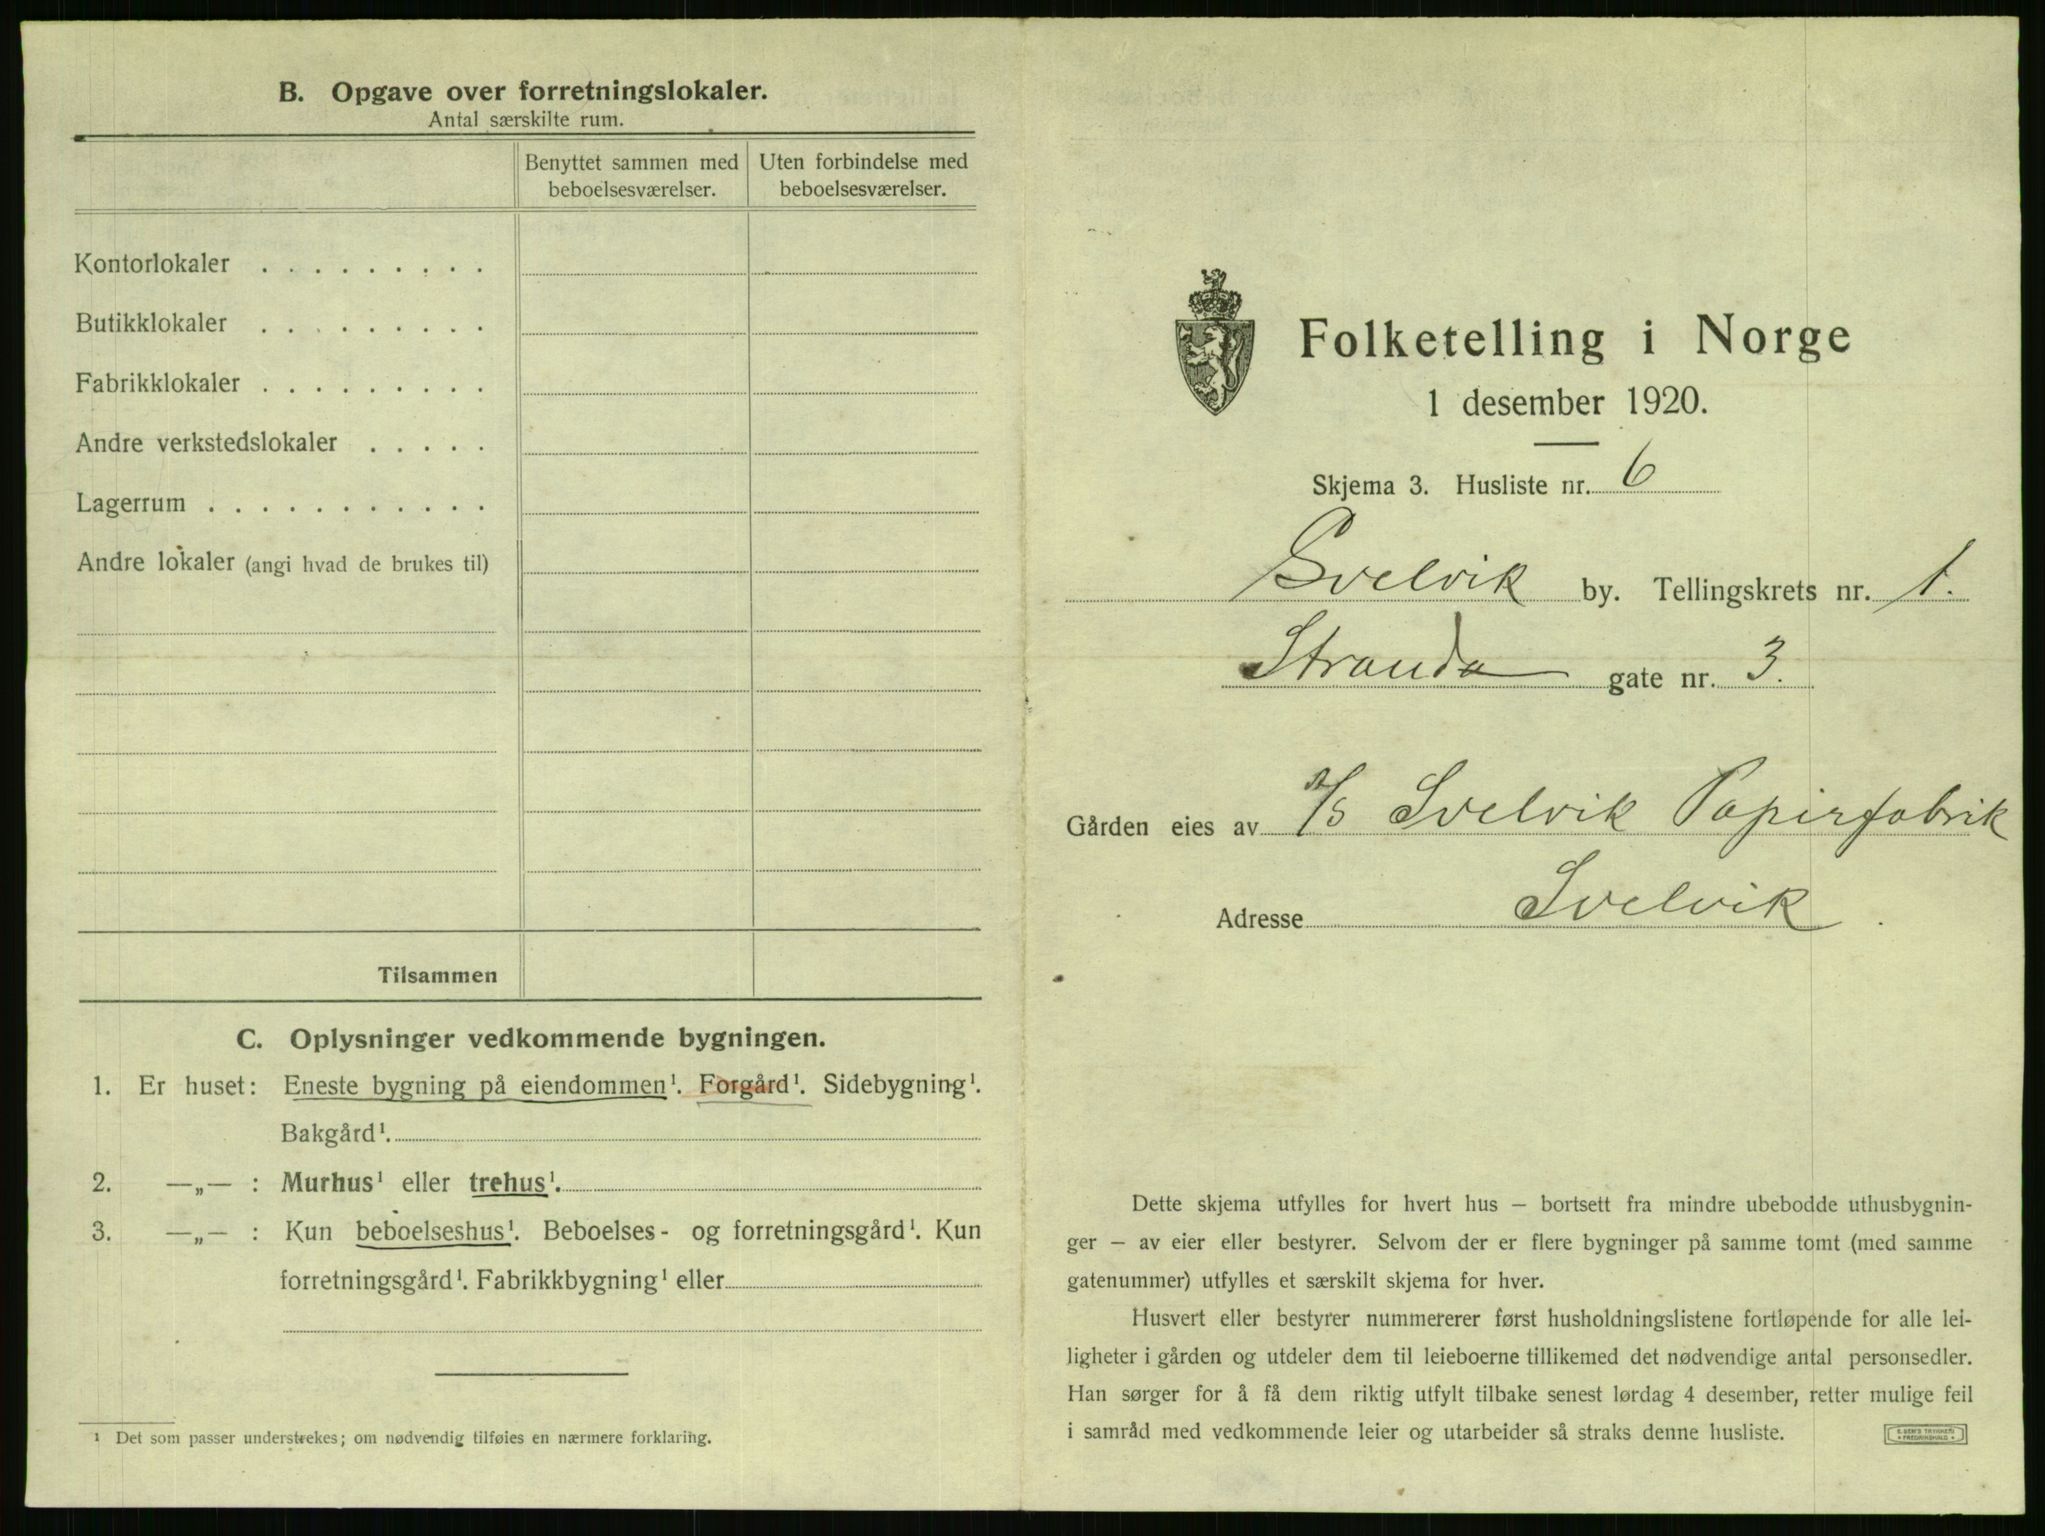 B. Opgave over forretningslokaler.
Antal særskilte rum.
Benyttet sammen med beboelsesværelser.
Uten forbindelse med beboelsesværelser.
Kontorlokaler . . . . . . . . .
Butikklokaler . . . . . . . . .
Fabrikklokaler . . . . . . . . .
Andre verkstedslokaler . . . . .
Lagerrum . . . . . . . . . . .
Andre lokaler (angi hvad de brukes til)
Tilsammen
C. Oplysninger vedkommende bygningen.
1. Er huset: Eneste bygning på eiendommen¹. Forgård¹. Sidebygning¹.
Bakgård¹.
2. —„— : Murhus¹ eller trehus¹.
3. —„— : Kun beboelseshus¹. Beboelses- og forretningsgård¹. Kun
forretningsgård¹. Fabrikkbygning¹ eller
¹ Det som passer understrekes; om nødvendig tilføies en nærmere forklaring.
Folketelling i Norge
1 desember 1920.
Skjema 3. Husliste nr. 6
Svelvik by. Tellingskrets nr. 1.
Stranda gate nr. 3.
Gården eies av A/S Svelvik Papirfabrik
Adresse Svelvik
Dette skjema utfylles for hvert hus – bortsett fra mindre ubebodde uthusbygnin-
ger – av eier eller bestyrer. Selvom der er flere bygninger på samme tomt (med samme
gatenummer) utfylles et særskilt skjema for hver.
Husvert eller bestyrer nummererer først husholdningslistene fortløpende for alle lei-
ligheter i gården og utdeler dem til leieboerne tillikemed det nødvendige antal personsedler.
Han sørger for å få dem riktig utfylt tilbake senest lørdag 4 desember, retter mulige feil
i samråd med vedkommende leier og utarbeider så straks denne husliste.
E. SEM'S TRYKKERI
FREDRIKSHALD